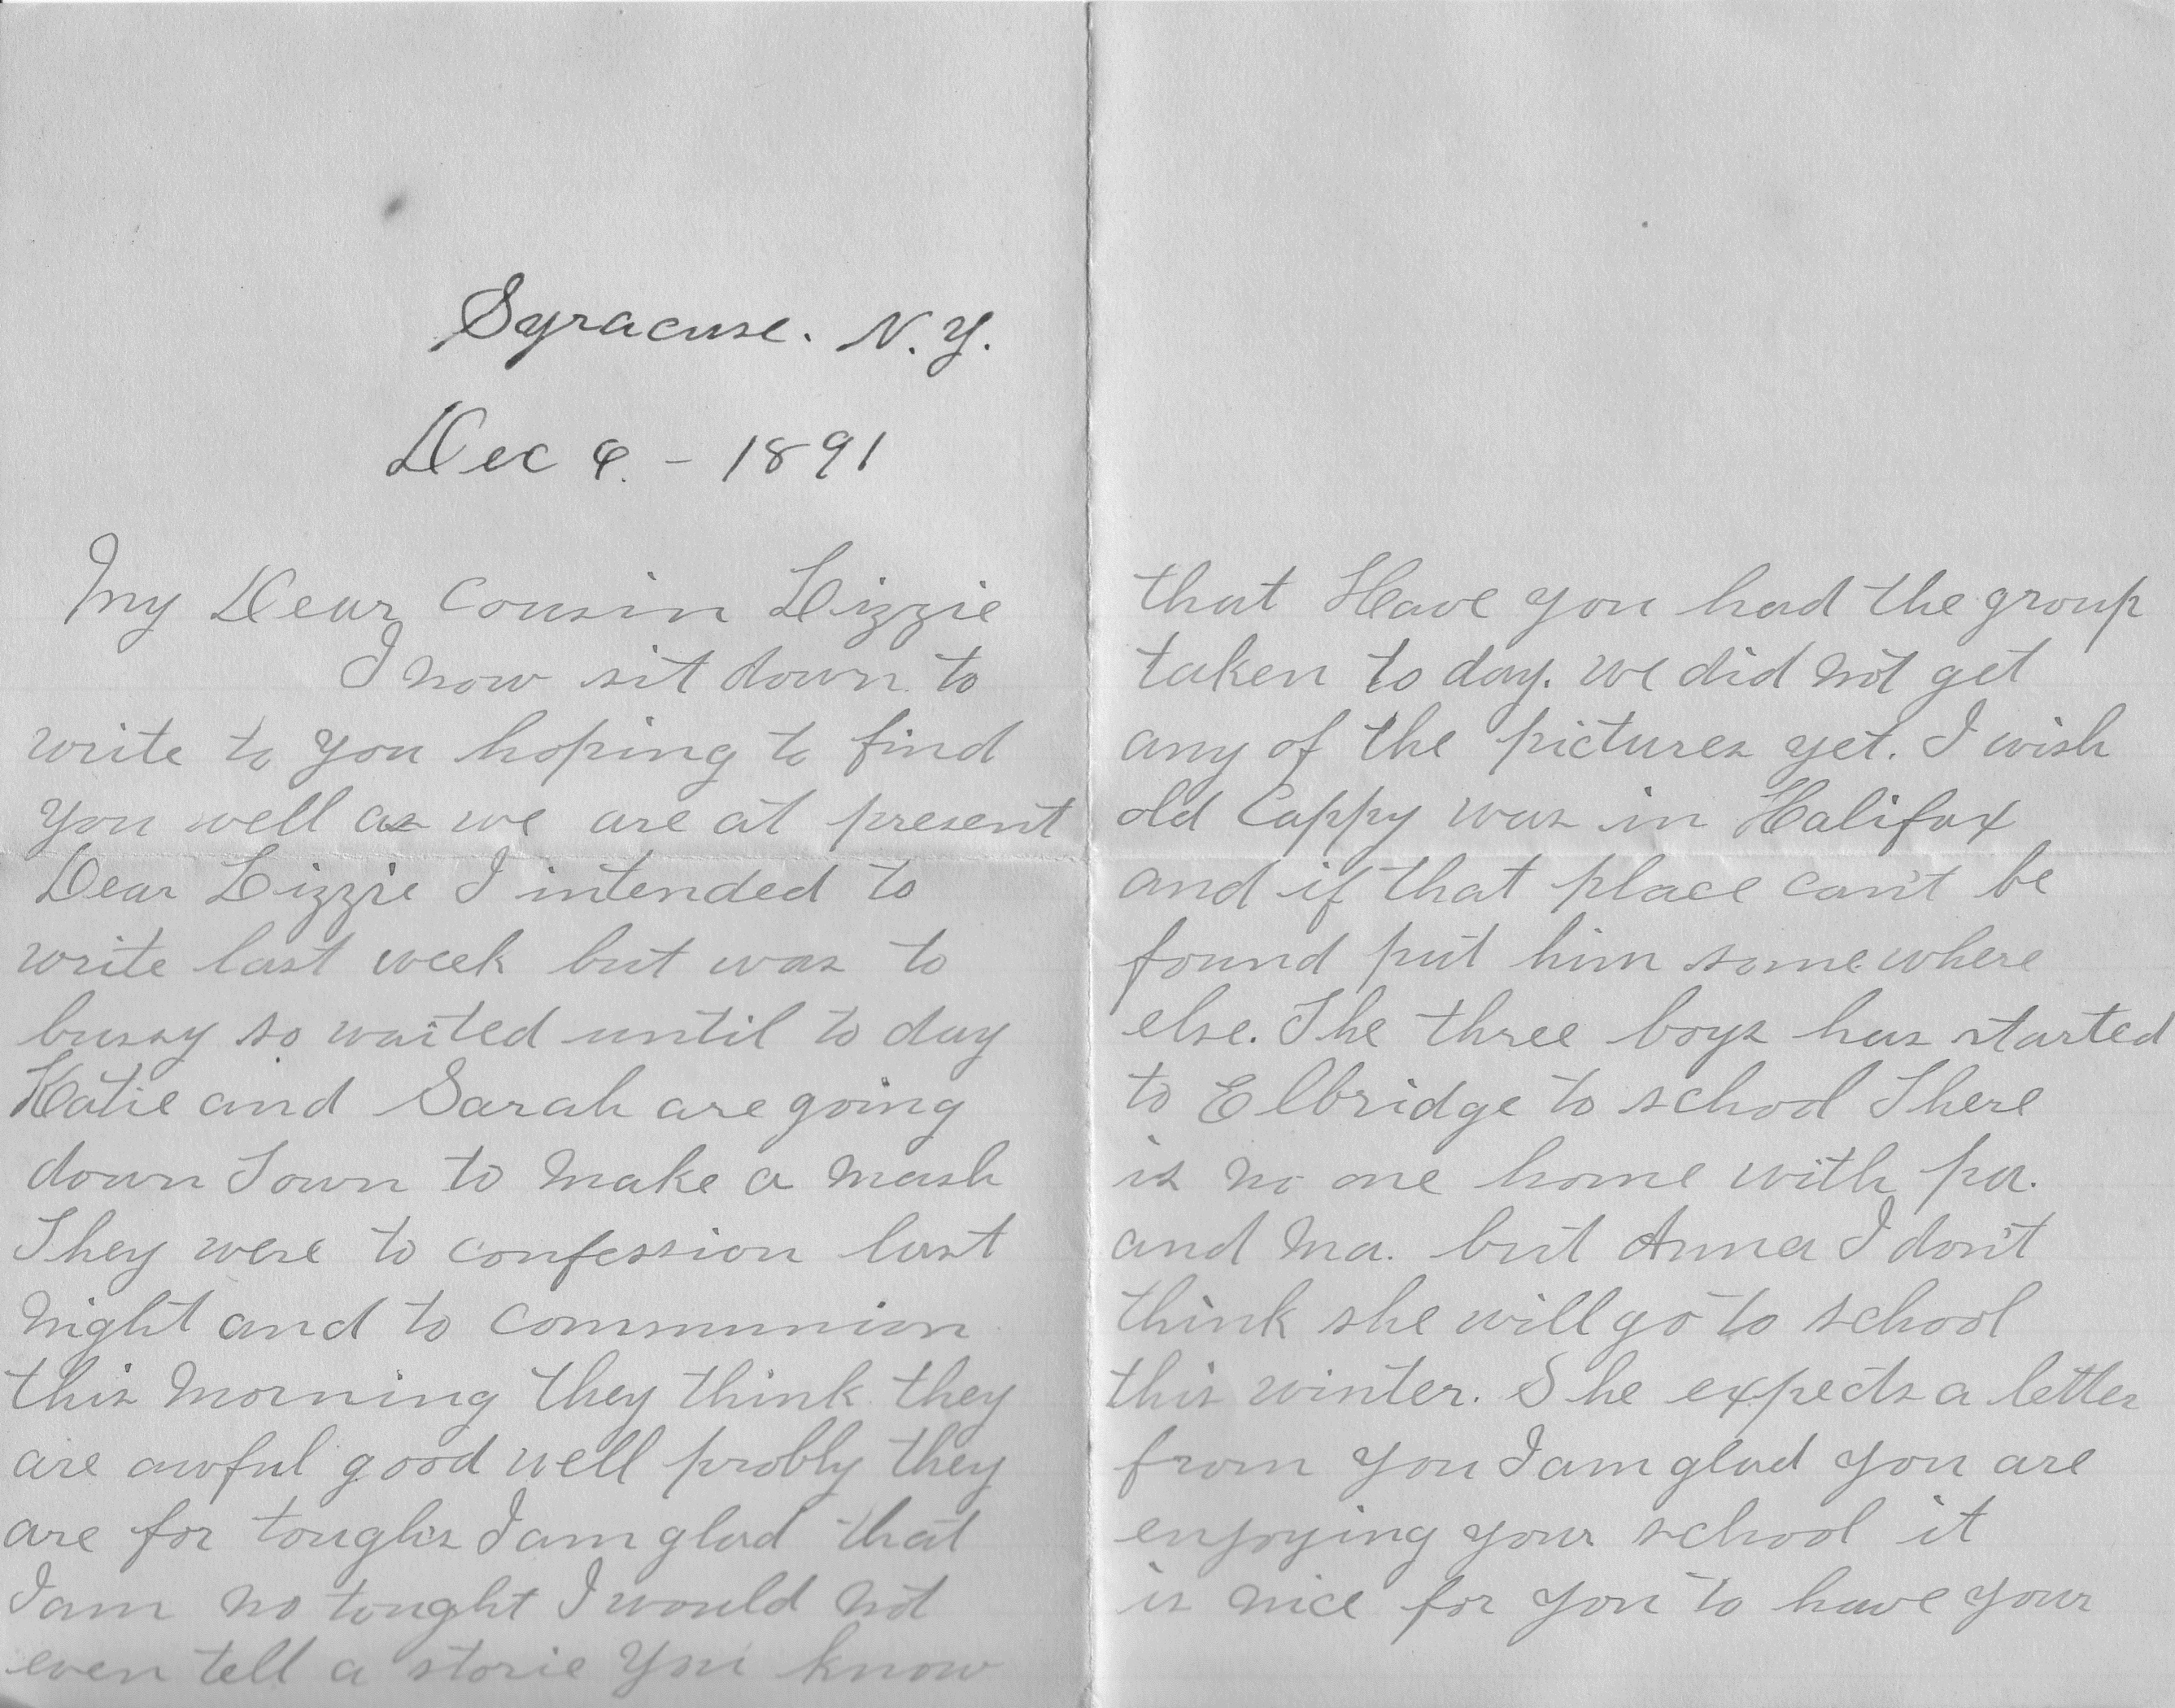 Syracuse. N.Y.
Dec 4. - 1891
My Dear Cousin Lizzie
I now sit down to
write to you hoping to find
you well as we are at present
Dear Lizzie I intended to
write last week but was to
bussy so waited until to day
Katie and Sarah are going
down Town to make a mash
They were to confession last
night and to communion
this morning they think they
are awful good well probly they
are for toughs I am glad that
I am no tought I would not
even tell a storie you know
that Have you had the group
taken to day. we did not get
any of the pictures yet. I wish
old Cappy was in Halifax
and if that place can't be
found put him somewhere
else. The three boys has started
to Elbridge to school There
is no one home with pa.
and ma. but Anna I don't
think she will go to school
this winter. She expects a letter
from you I am glad you are
enjoying your school it
is nice for you to have your